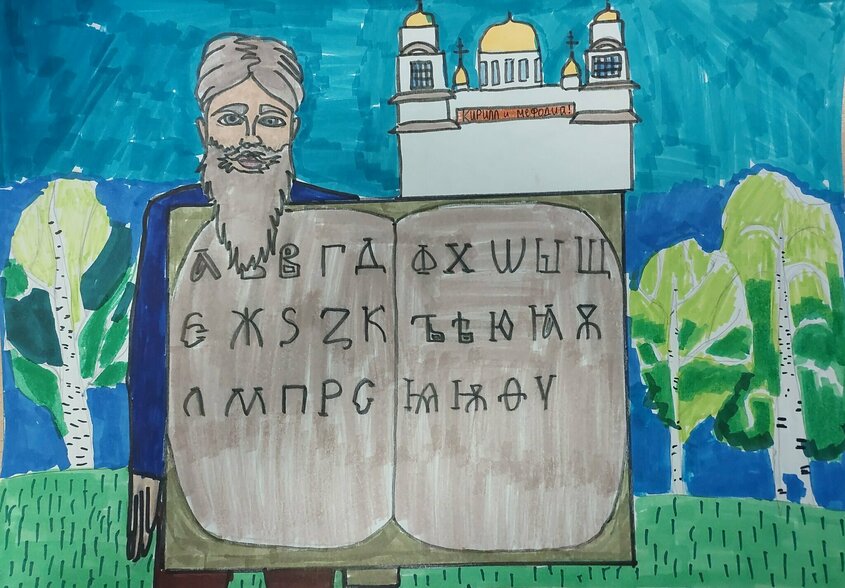 КИРИЛЛ и МЕФОДИЙ!
А Б В Г Д Ф Х Ѡ Ы Щ
Є Ж Ѕ Ꙁ К Ъ Ѣ Ю Ꙗ Ѫ
Л М П Р С Ѩ Ѭ Ѳ Ѵ